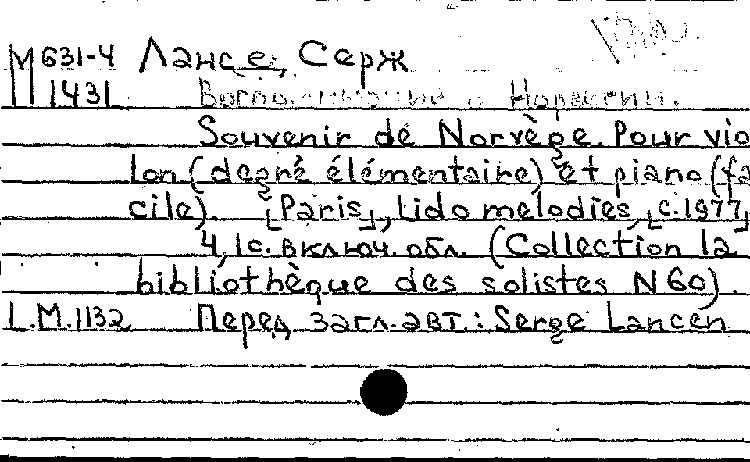 М 631-4 Лансе, Серж
1431 Воспоминание о Норвегии.
Souvenir de Norvège. Pour vio
lon (degré élémentaire) et piano (fa
cile). [Paris], Lido melodies, [c. 1977]
4, 1c. включ. обл. (Collection la
bibliothèque des solistes N 60).
L.M.1132 Перед загл. авт.: Serge Lancen